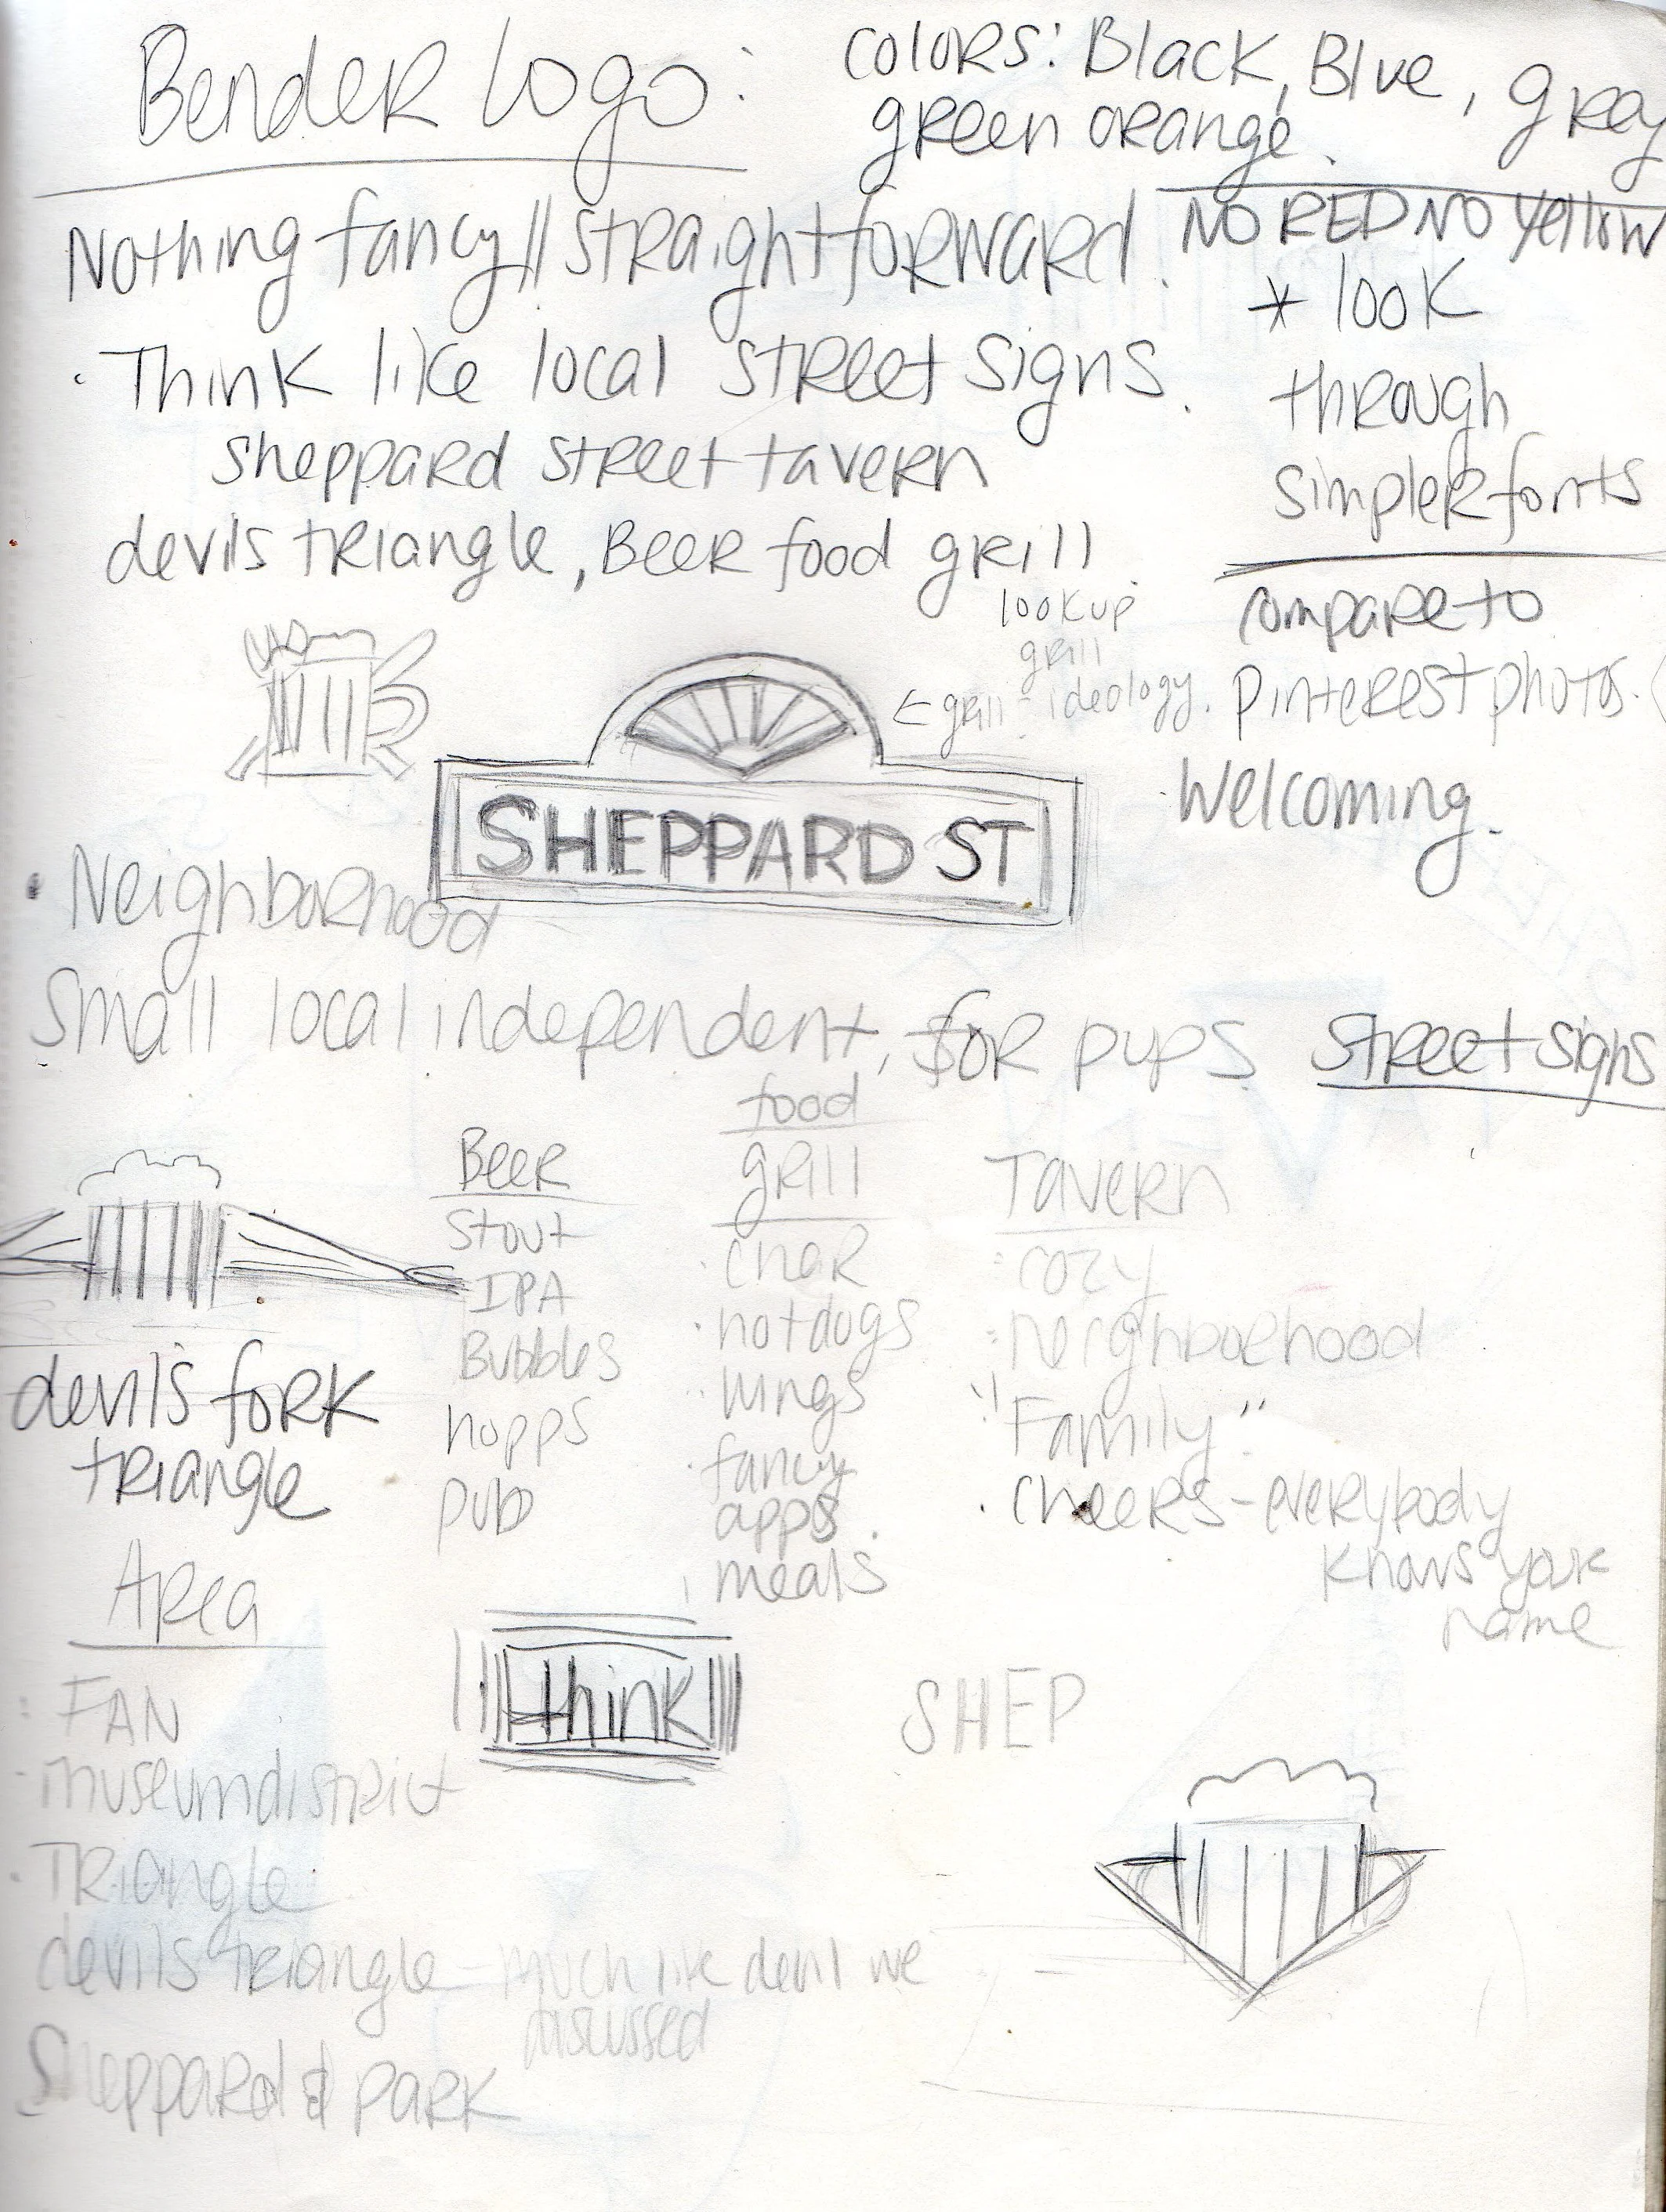 Bender Logo:
colors: Black, Blue, grey
green orange.
Nothing fancy || straightforward.
NO RED NO Yellow
• Think like local street signs.
sheppard street tavern
devils triangle, Beer food grill
* look
through
simpler fonts
compare to
pinterest photos.
• Welcoming.
lookup
grill
← grill - ideology.
SHEPPARD ST
• Neighborhood
Small local independent, for pups
street signs
Beer
Stout
IPA
Bubbles
hopps
pub
food
grill
• char
• hotdogs
• wings
• fancy
apps.
• meals
Tavern
- cozy
- neighborhood
"Family"
• cheers - everybody
knows your
name
devils fork
triangle
Area
• FAN
- museum district
• TRiangle
devils triangle - much like devil we
discussed
Sheppard & park
think
SHEP